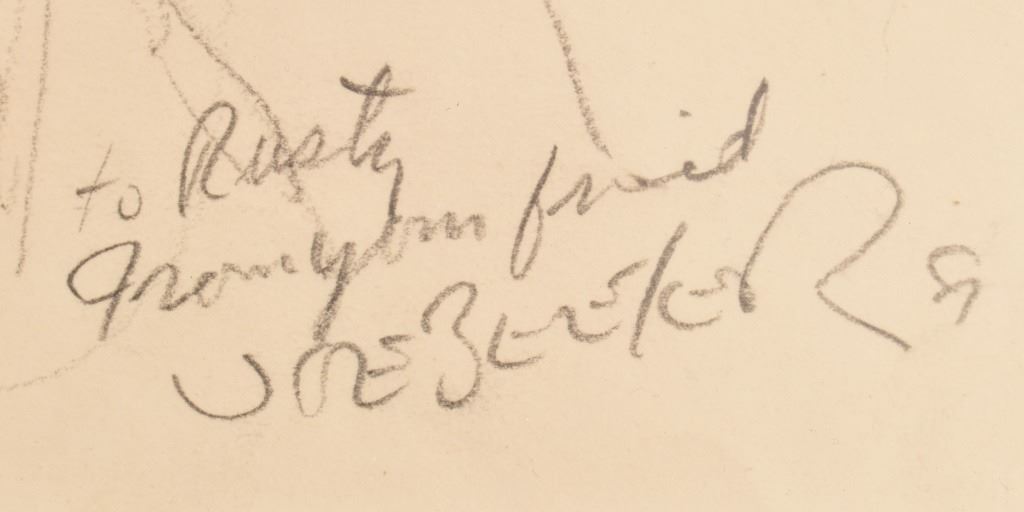 to Rusty
From your frid
JOE BEEKER 59